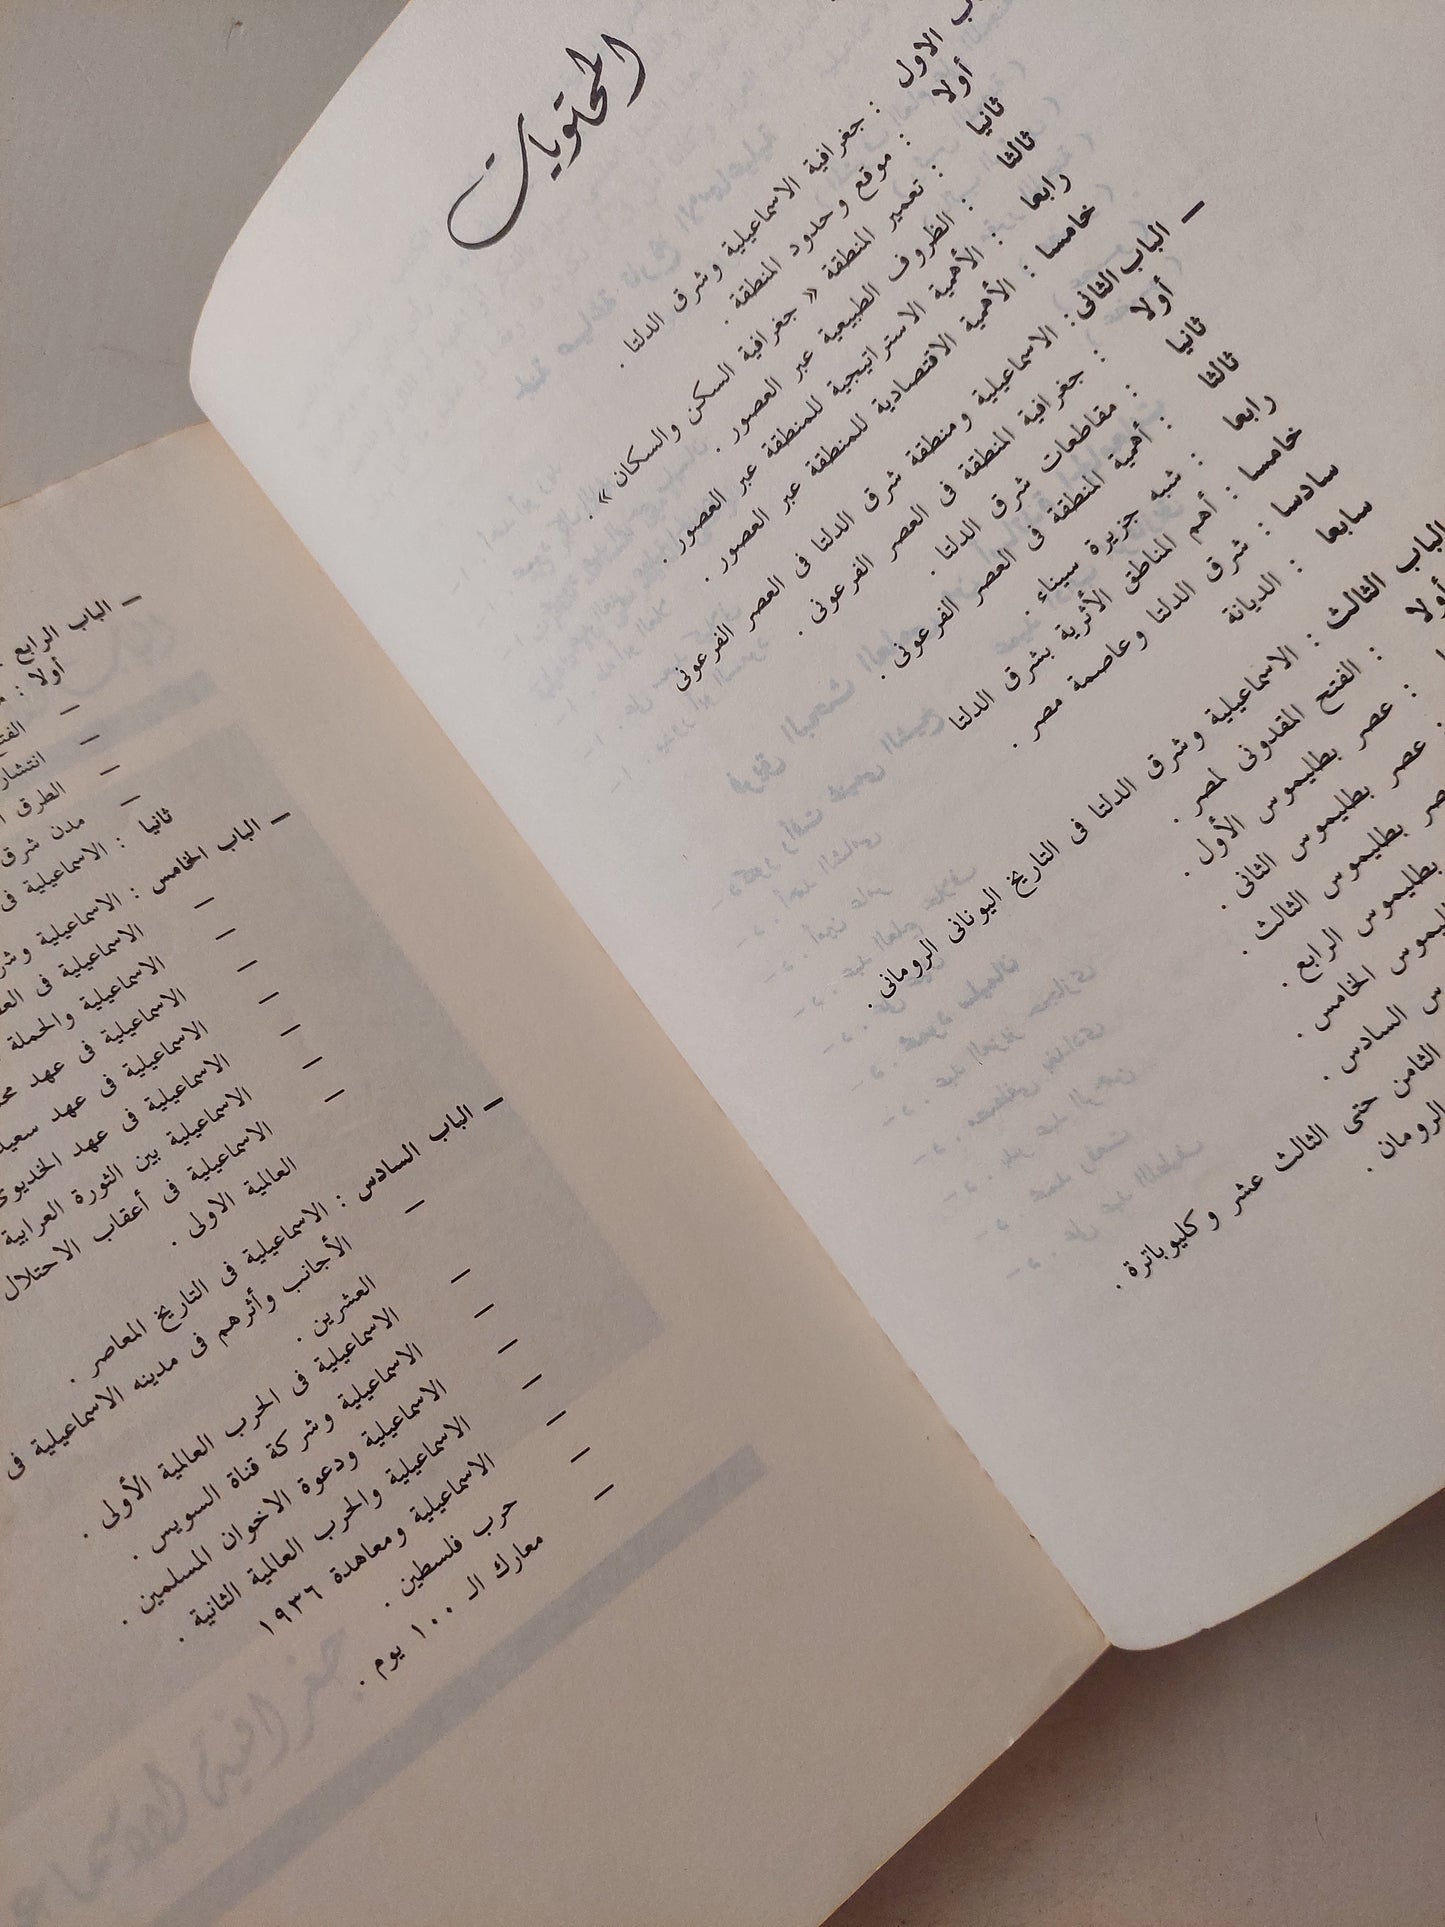 المحتويات
الاول : جغرافية الاسماعيلية وشرق الدلتا .
أولا : موقع وحدود المنطقة .
ثانيا : تعمير المنطقة « جغرافية السكن والسكان » .
ثالثا : الظروف الطبيعية عبر العصور .
رابعا : الأهمية الاستراتيجية للمنطقة عبر العصور .
خامسا : الأهمية الاقتصادية للمنطقة عبر العصور .
— الباب الثانى : الاسماعيلية ومنطقة شرق الدلتا فى العصر الفرعونى
أولا : جغرافية المنطقة فى العصر الفرعونى .
ثانيا : مقاطعات شرق الدلتا .
ثالثا : أهمية المنطقة فى العصر الفرعونى .
رابعا : شبه جزيرة سيناء .
خامسا : أهم المناطق الأثرية بشرق الدلتا
سادسا : شرق الدلتا وعاصمة مصر .
سابعا : الديانة
الباب الثالث : الاسماعيلية وشرق الدلتا فى التاريخ اليونانى الرومانى .
أولا : الفتح المقدونى لمصر .
: عصر بطليموس الأول .
: عصر بطليموس الثانى .
بطليموس الثالث .
بطليموس الرابع .
الخامس .
السادس .
الثامن حتى الثالث عشر وكليوباترة .
الرومان .
— الباب الرابع :
أولا :
—
— انتشار
— الطرق
— مدن شرق
ثانيا : الاسماعيلية فى
— الباب الخامس : الاسماعيلية
— الاسماعيلية فى
— الاسماعيلية والحملة
— الاسماعيلية فى عهد
— الاسماعيلية فى عهد سعيد
— الاسماعيلية فى عهد الخديوى
— الاسماعيلية بين الثورة العرابية
— الاسماعيلية فى أعقاب الاحتلال
العالمية الاولى .
— الباب السادس : الاسماعيلية فى التاريخ المعاصر .
— الأجانب وأثرهم فى مدينه الاسماعيلية فى
العشرين .
— الاسماعيلية فى الحرب العالمية الأولى .
— الاسماعيلية وشركة قناة السويس .
— الاسماعيلية ودعوة الاخوان المسلمين .
— الاسماعيلية والحرب العالمية الثانية .
— الاسماعيلية ومعاهدة ١٩٣٦
— حرب فلسطين .
— معارك الـ ١٠٠ يوم .